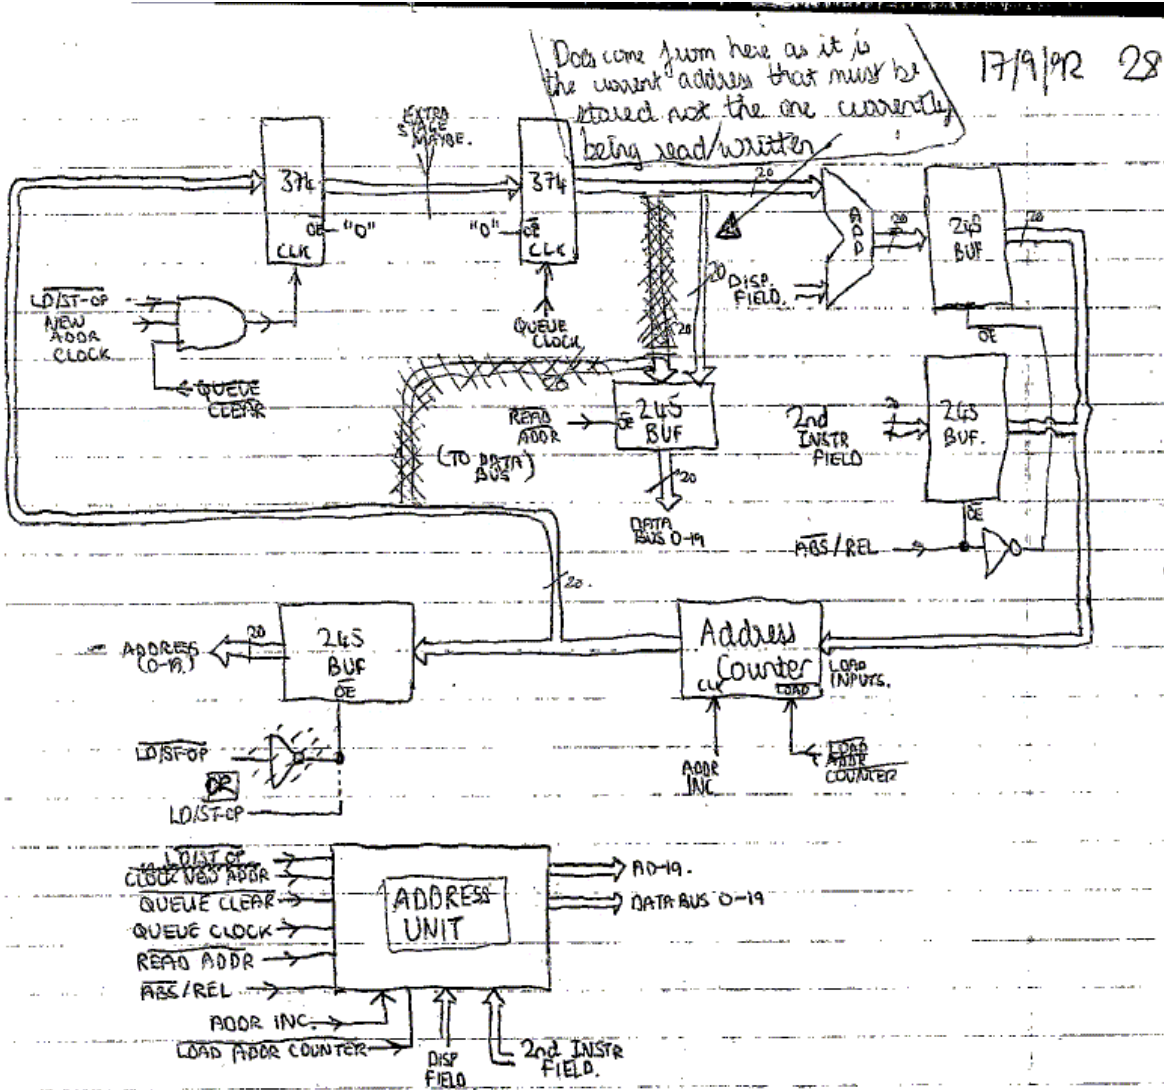 Does come from here as it is
the current address that must be
stored not the one currently
being read/written
17/9/92 28
EXTRA
STAGE
MAYBE.
374
OE
CLK
"0"
374
"0"
OE
CLK
20
ADD
20
245
BUF
20
OE
LD/ST-OP
NEW
ADDR
CLOCK
QUEUE
CLEAR
QUEUE
CLOCK
20
20
DISP.
FIELD.
20
READ
ADDR
OE
245
BUF
(TO DATA
BUS)
20
DATA
BUS 0-19
2nd
INSTR
FIELD
20
245
BUF.
OE
ABS/REL
20.
ADDRESS
(0-19)
20
245
BUF
OE
Address
Counter
CLK
LOAD
LOAD
INPUTS.
LD/ST-OP
OR
LD/ST-OP
ADDR
INC
LOAD
ADDR
COUNTER
LD/ST OP
CLOCK NEW ADDR
QUEUE CLEAR
QUEUE CLOCK
READ ADDR
ABS/REL
ADDR INC.
LOAD ADDR COUNTER
ADDRESS
UNIT
A0-19.
DATA BUS 0-19
DISP
FIELD
2nd INSTR
FIELD.